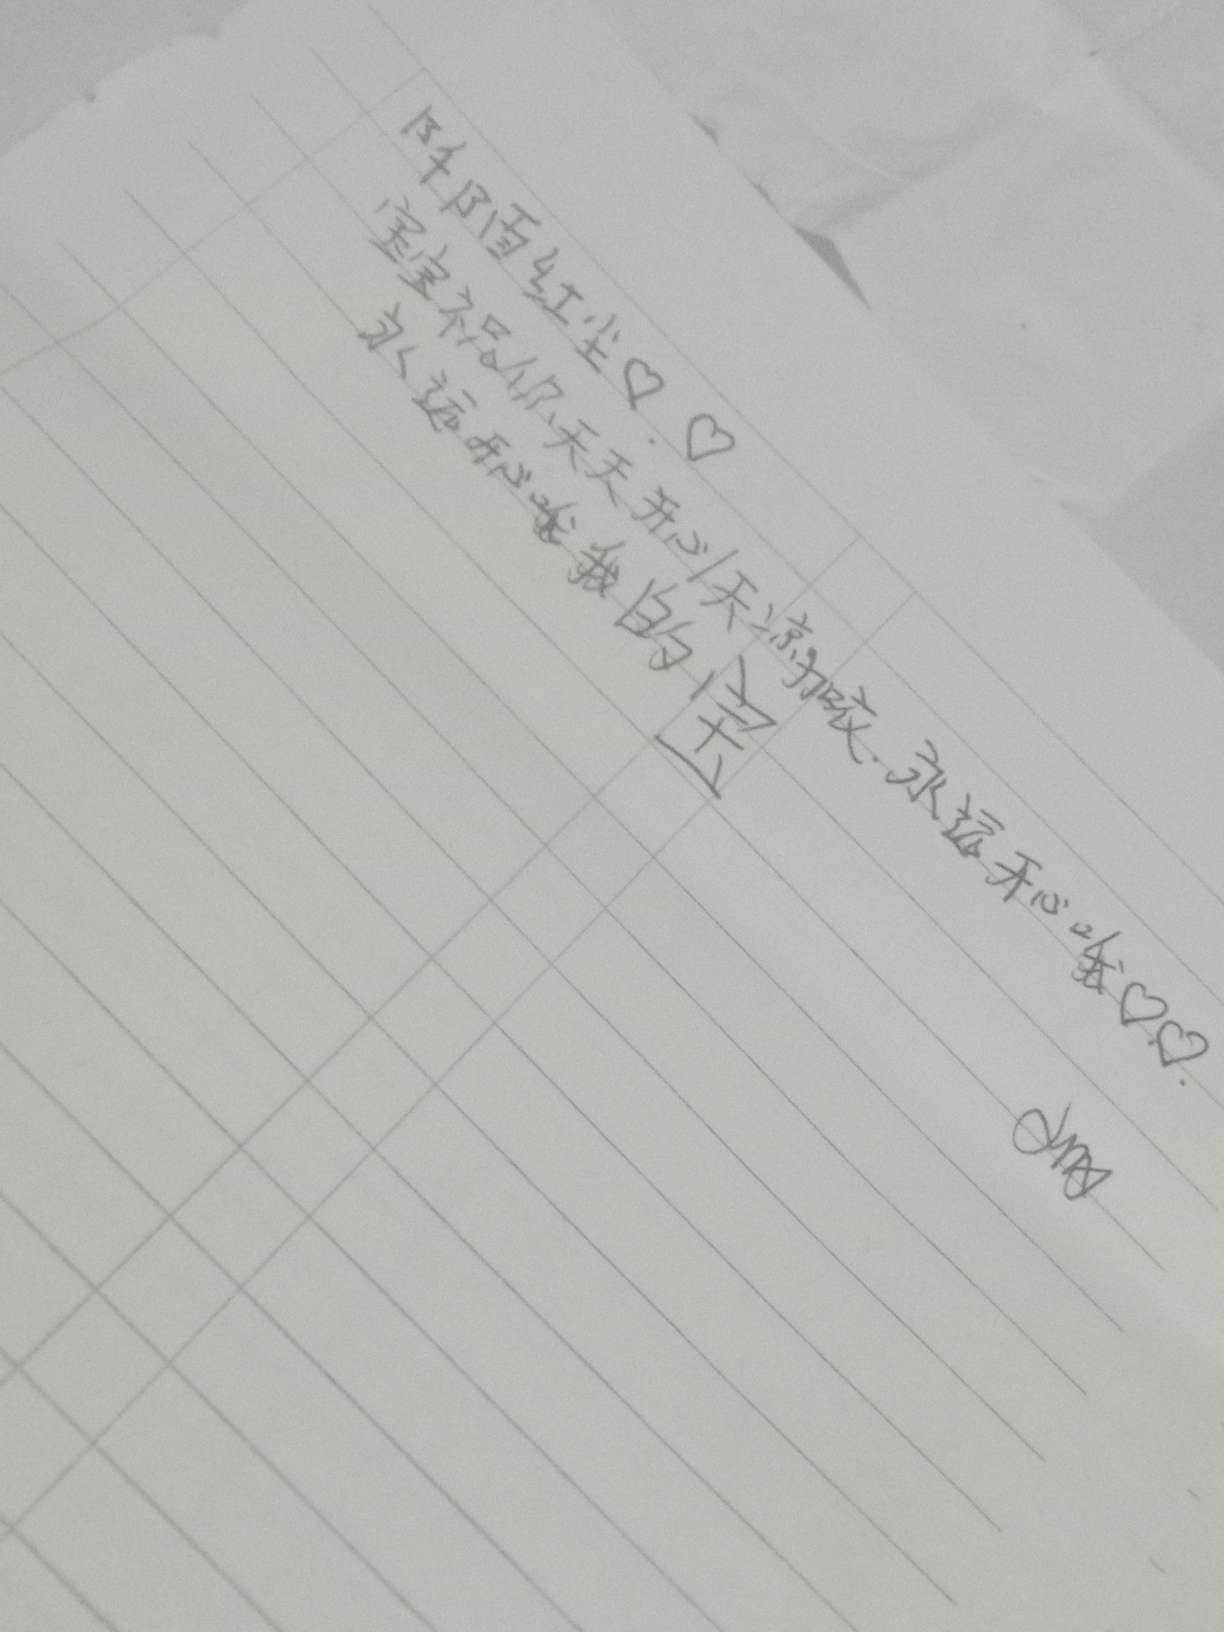 陌红尘♡♡
宝宝祝你天天开心/天凉加衣.永远开心哦♡♡.
永远开心哦我的宝